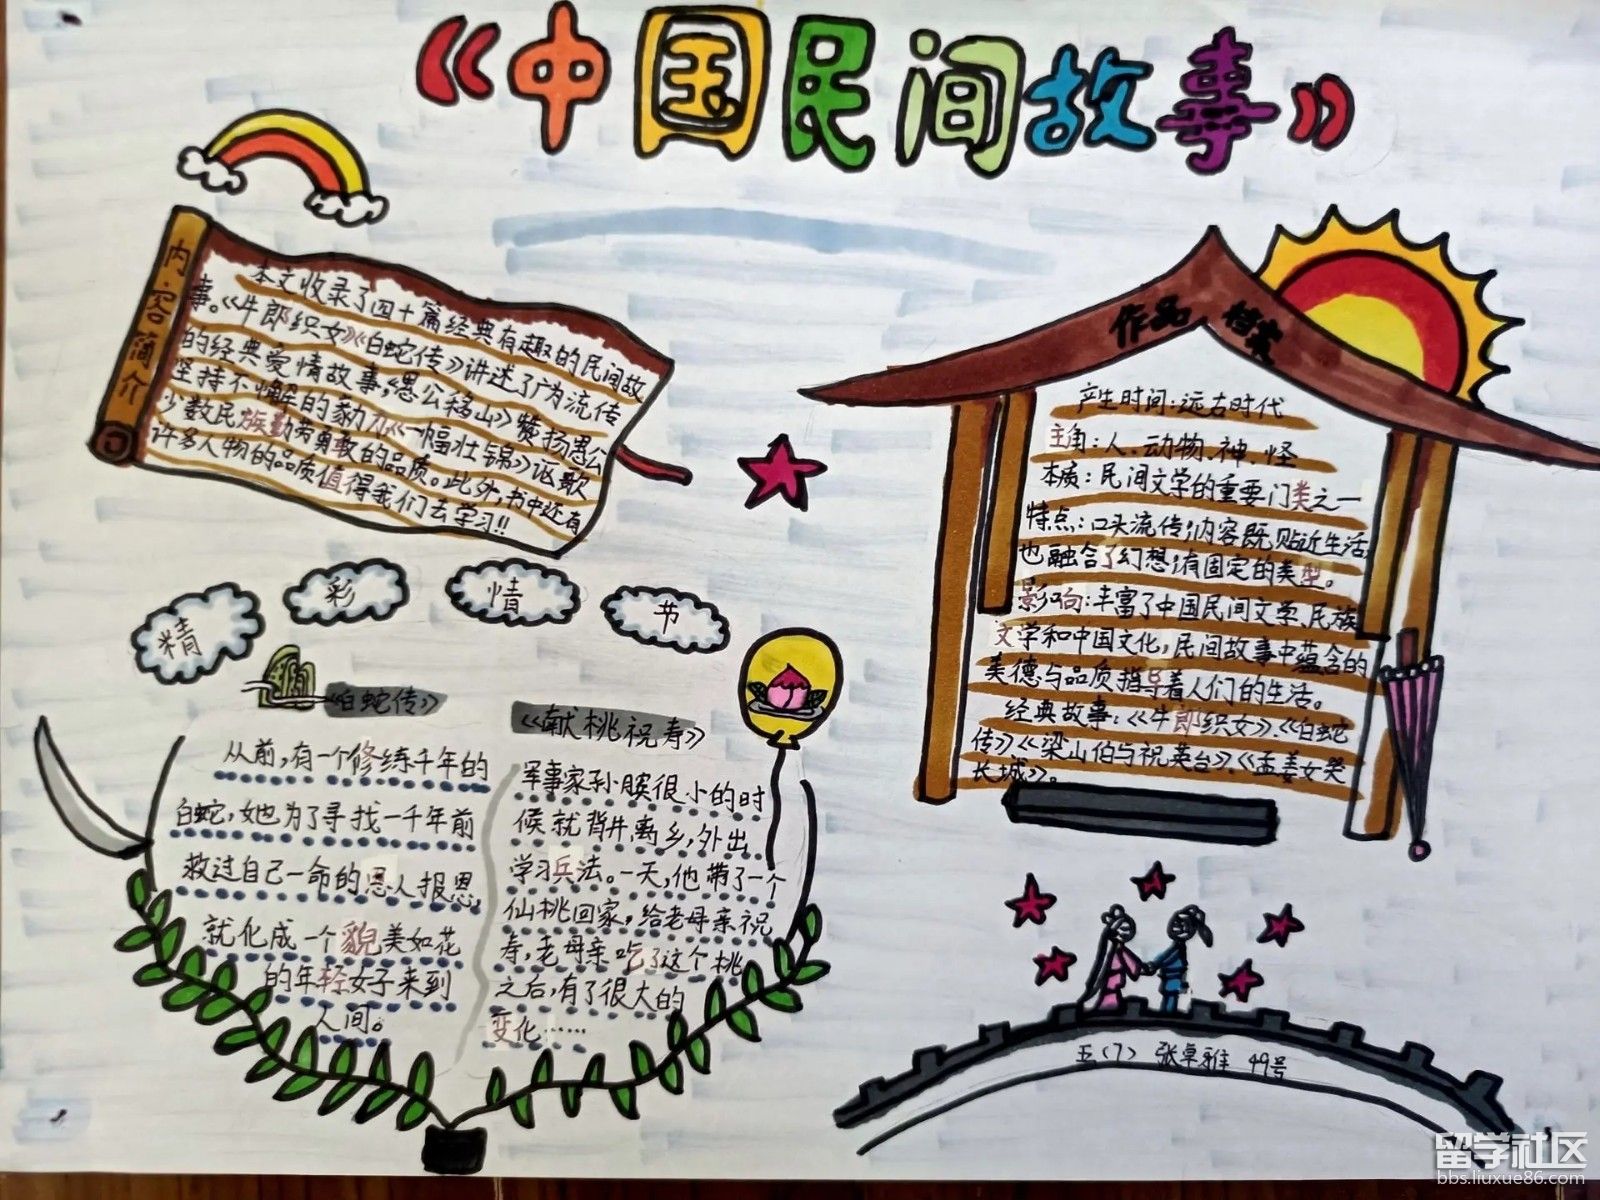 《中国民间故事》
内容简介
本文收录了四十篇经典有趣的民间故
事。《牛郎织女》《白蛇传》讲述了广为流传
的经典爱情故事,《愚公移山》赞扬愚公
坚持不懈的毅力《一幅壮锦》讴歌
少数民族勤劳勇敢的品质。此外,书中还有
许多人物的品质值得我们去学习!!
作品档案
产生时间:远古时代
主角:人、动物、神、怪
本质:民间文学的重要门类之一
特点:口头流传;内容既贴近生活,
也融合了幻想;有固定的类型。
影响:丰富了中国民间文学、民族
文学和中国文化,民间故事中蕴含的
美德与品质指导着人们的生活。
经典故事:《牛郎织女》、《白蛇
传》《梁山伯与祝英台》、《孟姜女哭
长城》。
精彩情节
《白蛇传》
从前,有一个修练千年的
白蛇,她为了寻找一千年前
救过自己一命的恩人报恩,
就化成一个貌美如花
的年轻女子来到
人间。
《献桃祝寿》
军事家孙膑很小的时
候就背井离乡,外出
学习兵法。一天,他带了一个
仙桃回家,给老母亲祝
寿,老母亲吃了这个桃
之后,有了很大的
变化……
五(7) 张卓雅 49号
留学社区
bbs.liuxue86.com